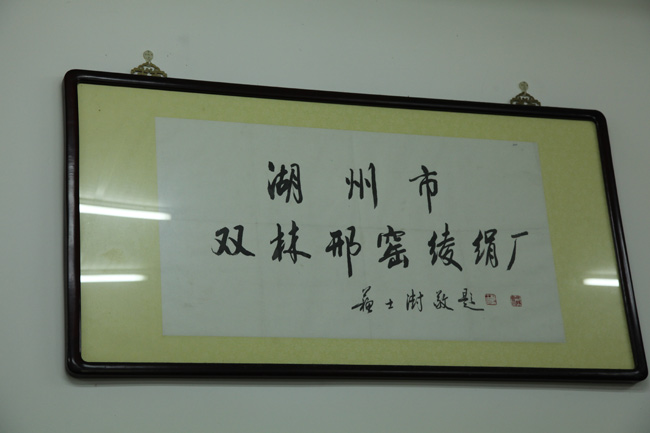 湖州市
双林邢窑绫绢厂
苏士澍敬题